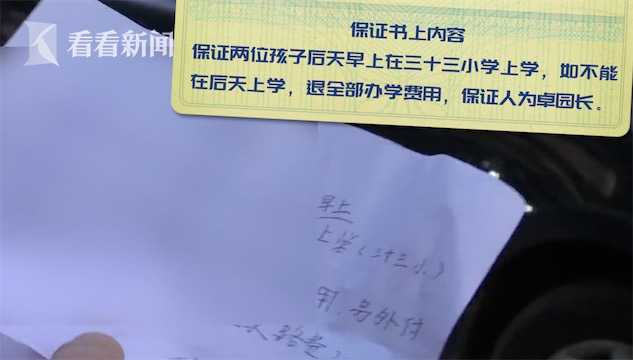 看看新闻
保证书上内容
保证两位孩子后天早上在三十三小学上学，如不能
在后天上学，退全部办学费用，保证人为卓园长。
早上
上学（三十三小）
用，另外付
路费